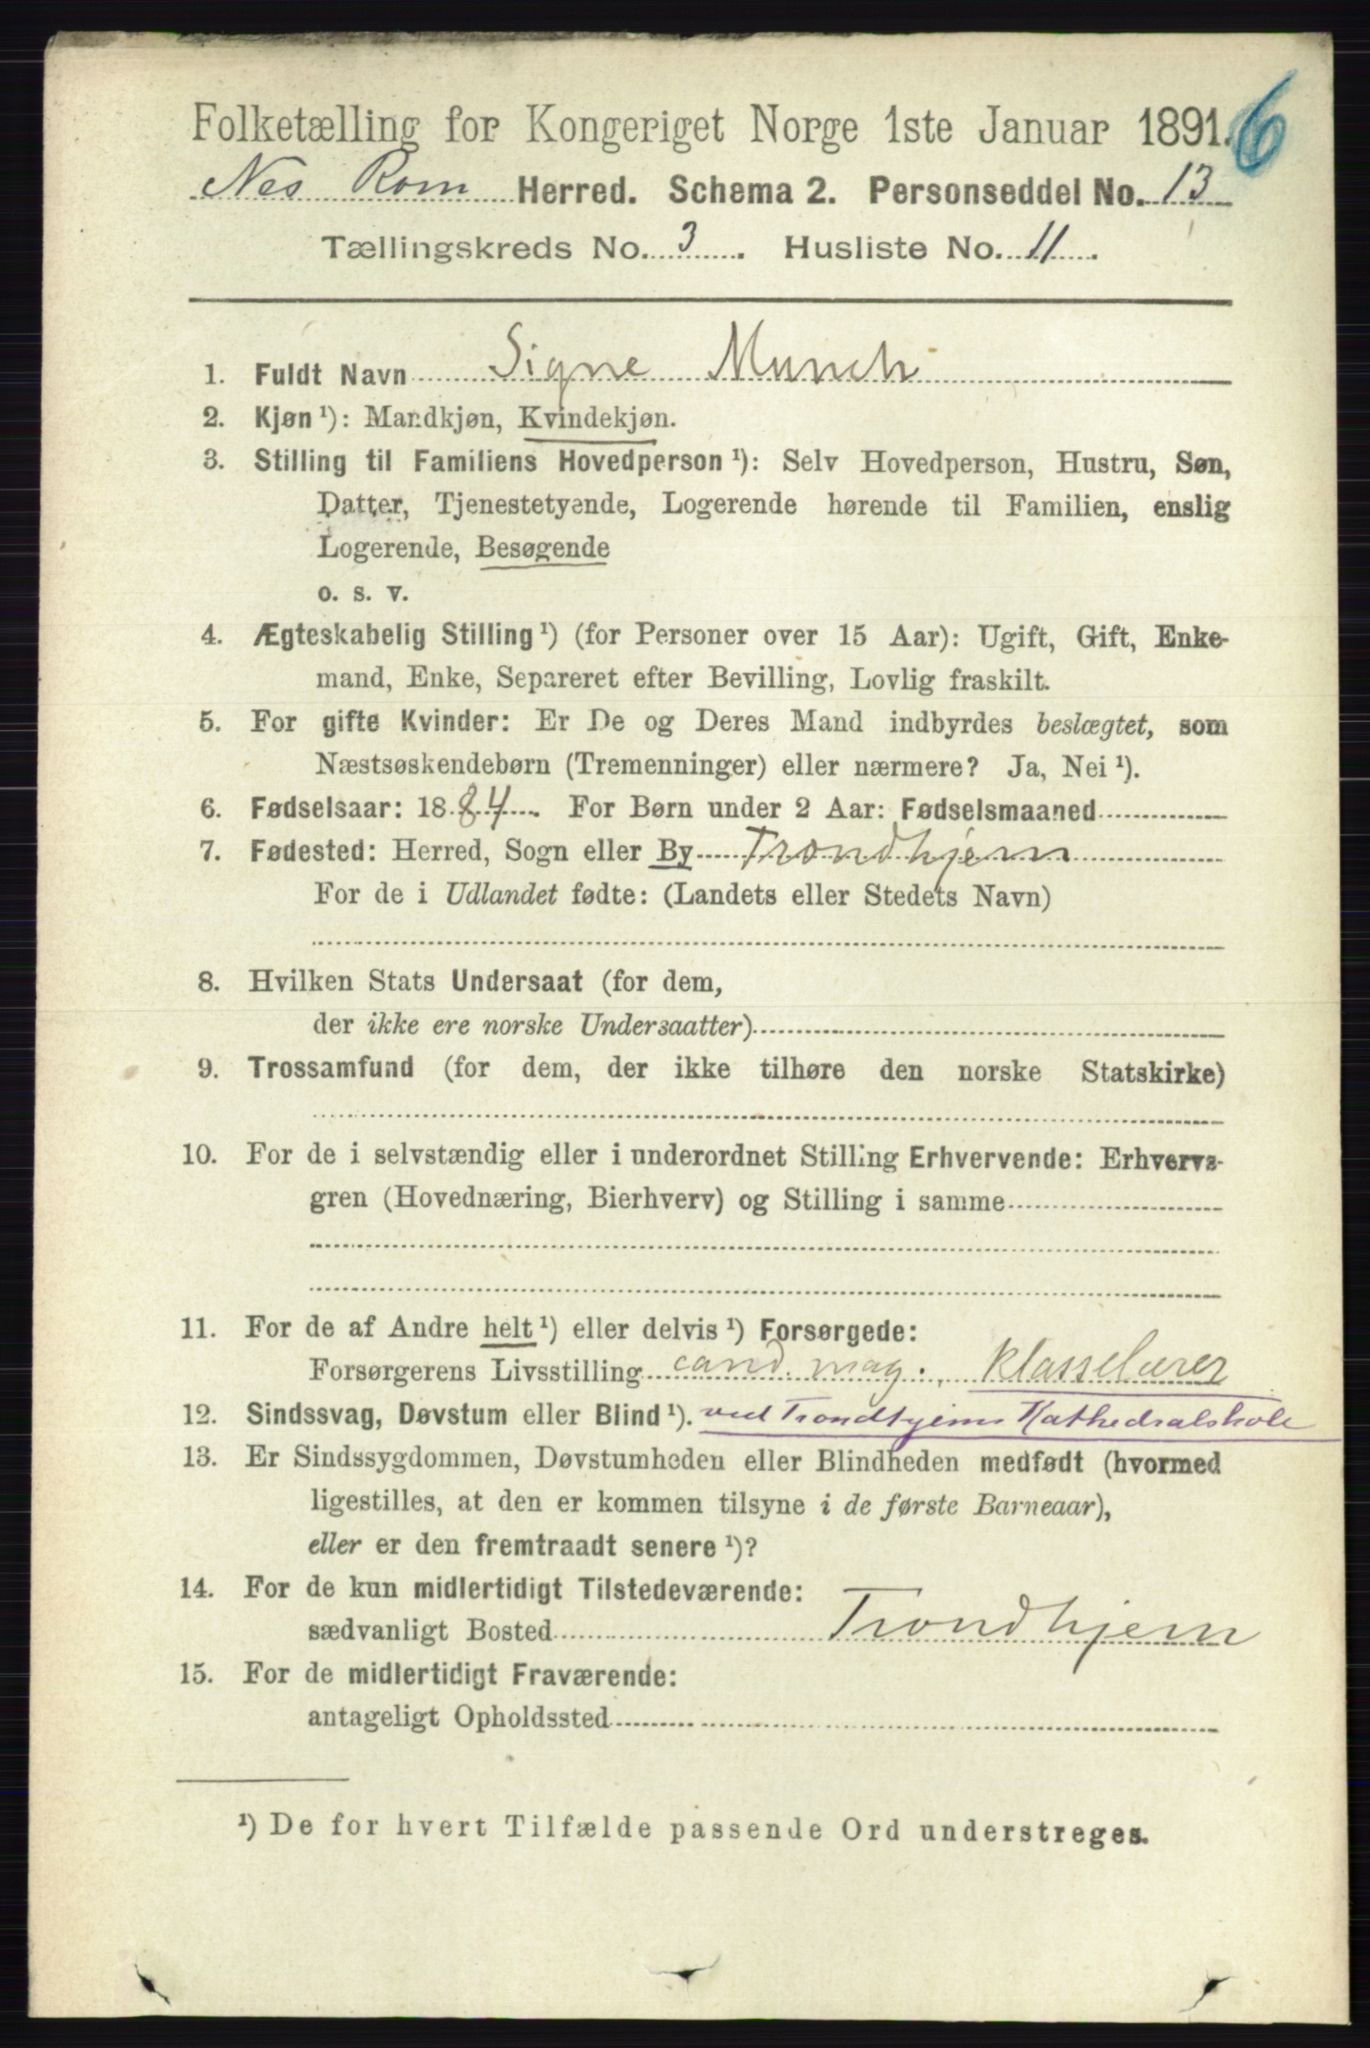 Folketælling for Kongeriget Norge 1ste Januar 1891. 6
Nes Rom Herred. Schema 2. Personseddel No. 13
Tællingskreds No. 3. Husliste No. 11.
1. Fuldt Navn Signe Munch
2. Kjøn ¹): Mandkjøn, Kvindekjøn.
3. Stilling til Familiens Hovedperson ¹): Selv Hovedperson, Hustru, Søn,
Datter, Tjenestetyende, Logerende hørende til Familien, enslig
Logerende, Besøgende
o. s. v.
4. Ægteskabelig Stilling ¹) (for Personer over 15 Aar): Ugift, Gift, Enke-
mand, Enke, Separeret efter Bevilling, Lovlig fraskilt.
5. For gifte Kvinder: Er De og Deres Mand indbyrdes beslægtet, som
Næstsøskendebørn (Tremenninger) eller nærmere? Ja, Nei ¹).
6. Fødselsaar: 1884. For Børn under 2 Aar: Fødselsmaaned
7. Fødested: Herred, Sogn eller By Trondhjem
For de i Udlandet fødte: (Landets eller Stedets Navn)
8. Hvilken Stats Undersaat (for dem,
der ikke ere norske Undersaatter)
9. Trossamfund (for dem, der ikke tilhøre den norske Statskirke)
10. For de i selvstændig eller i underordnet Stilling Erhvervende: Erhvervs-
gren (Hovednæring, Bierhverv) og Stilling i samme
11. For de af Andre helt ¹) eller delvis ¹) Forsørgede:
Forsørgerens Livsstilling cand. mag., Klasselærer
12. Sindssvag, Døvstum eller Blind ¹). ved Trondhjems Kathedralskole
13. Er Sindssygdommen, Døvstumheden eller Blindheden medfødt (hvormed
ligestilles, at den er kommen tilsyne i de første Barneaar),
eller er den fremtraadt senere ¹)?
14. For de kun midlertidigt Tilstedeværende:
sædvanligt Bosted Trondhjem
15. For de midlertidigt Fraværende:
antageligt Opholdssted
¹) De for hvert Tilfælde passende Ord understreges.